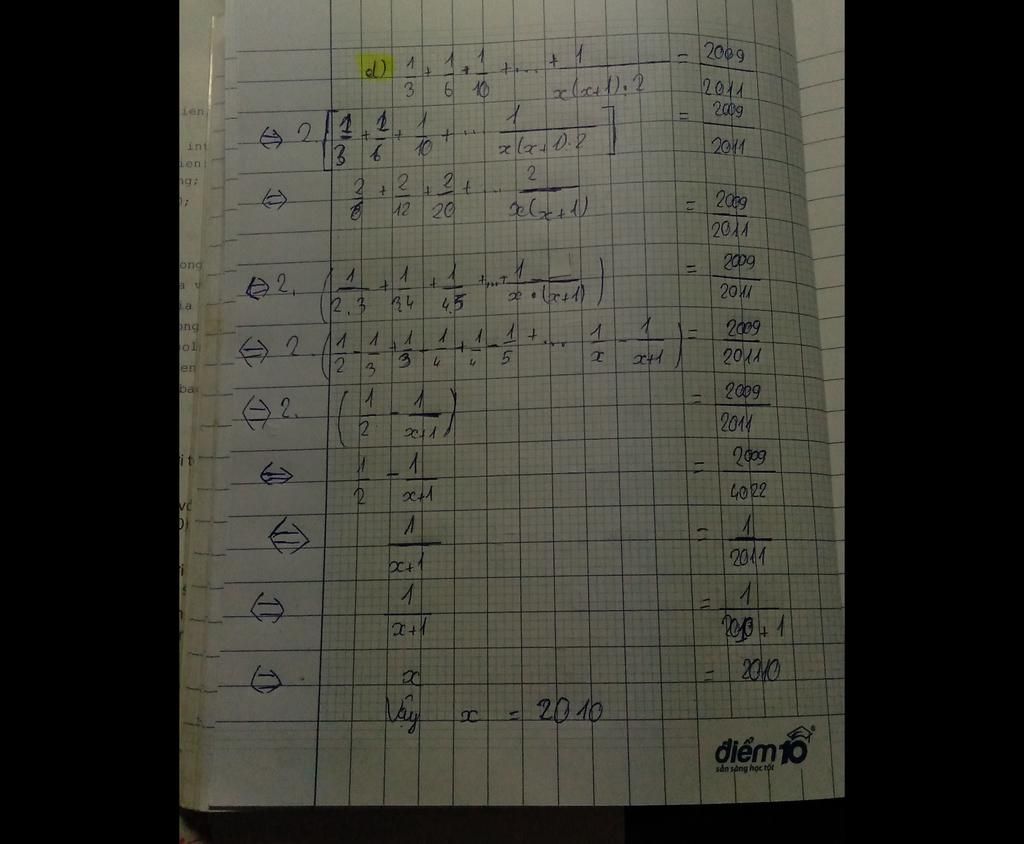 d) 1/3 + 1/6 + 1/10 + ... + 1/x(x+1):2 = 2009/2011
⇔ 2[1/3 + 1/6 + 1/10 + ... 1/x(x+1).2] = 2009/2011
⇔ 2/6 + 2/12 + 2/20 + ... 2/x(x+1) = 2009/2011
⇔ 2. (1/2.3 + 1/3.4 + 1/4.5 + ... + 1/x.(x+1)) = 2009/2011
⇔ 2. (1/2 - 1/3 + 1/3 - 1/4 + 1/4 - 1/5 + ... 1/x - 1/x+1) = 2009/2011
⇔ 2. (1/2 - 1/x+1) = 2009/2011
⇔ 1/2 - 1/x+1 = 2009/4022
⇔ 1/x+1 = 1/2011
⇔ 1/x+1 = 1/2010 + 1
⇔ x = 2010
Vậy x = 2010
điểm10
sẵn sàng học tốt